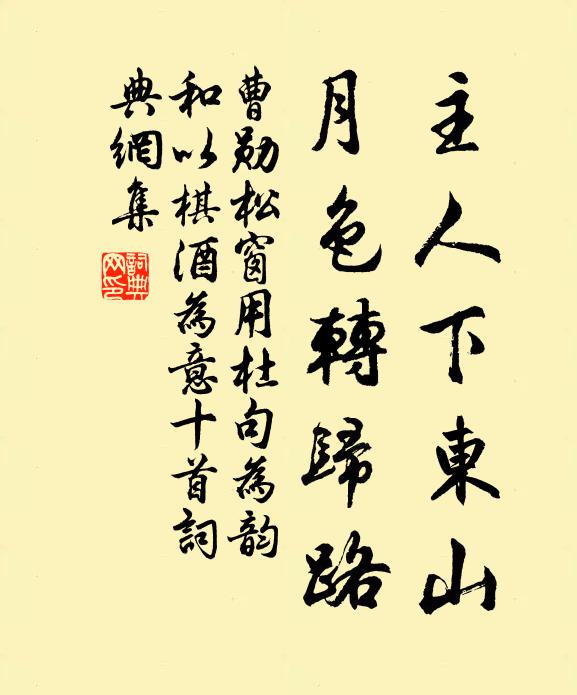 主人下東山
月色轉歸路
曹勛松窗用杜句為韵
和以棋酒為意十首詞
典網集
詞典網印